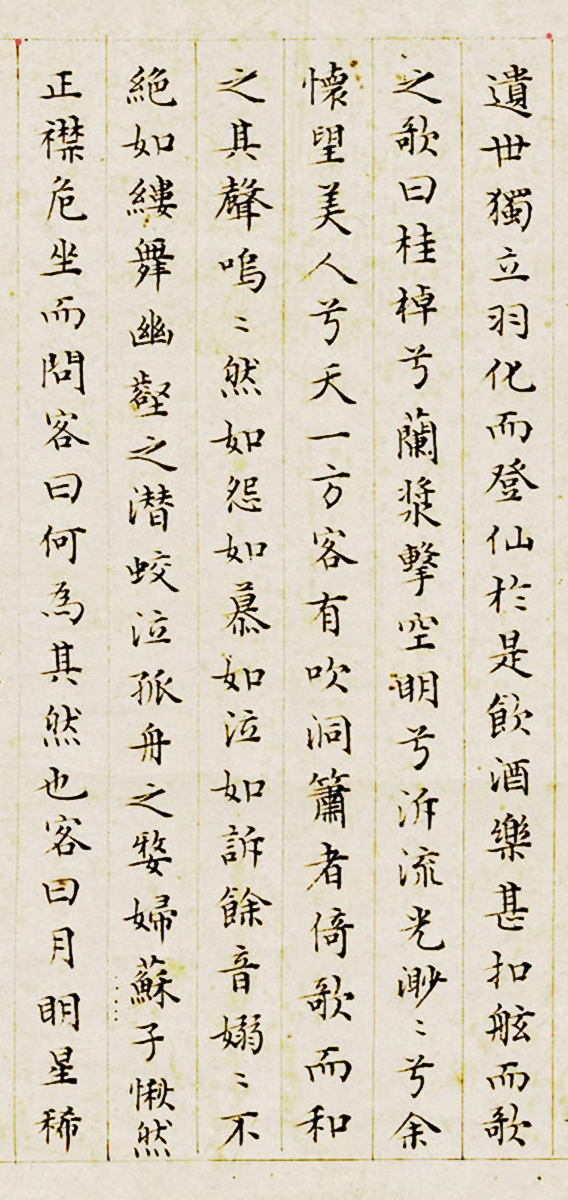 遺世獨立羽化而登仙於是飲酒樂甚扣舷而歌
之歌曰桂棹兮蘭槳擊空明兮泝流光渺〻兮余
懷望美人兮天一方客有吹洞簫者倚歌而和
之其聲嗚〻然如怨如慕如泣如訴餘音嫋〻不
絕如縷舞幽壑之潛蛟泣孤舟之嫠婦蘇子愀然
正襟危坐而問客曰何為其然也客曰月明星稀